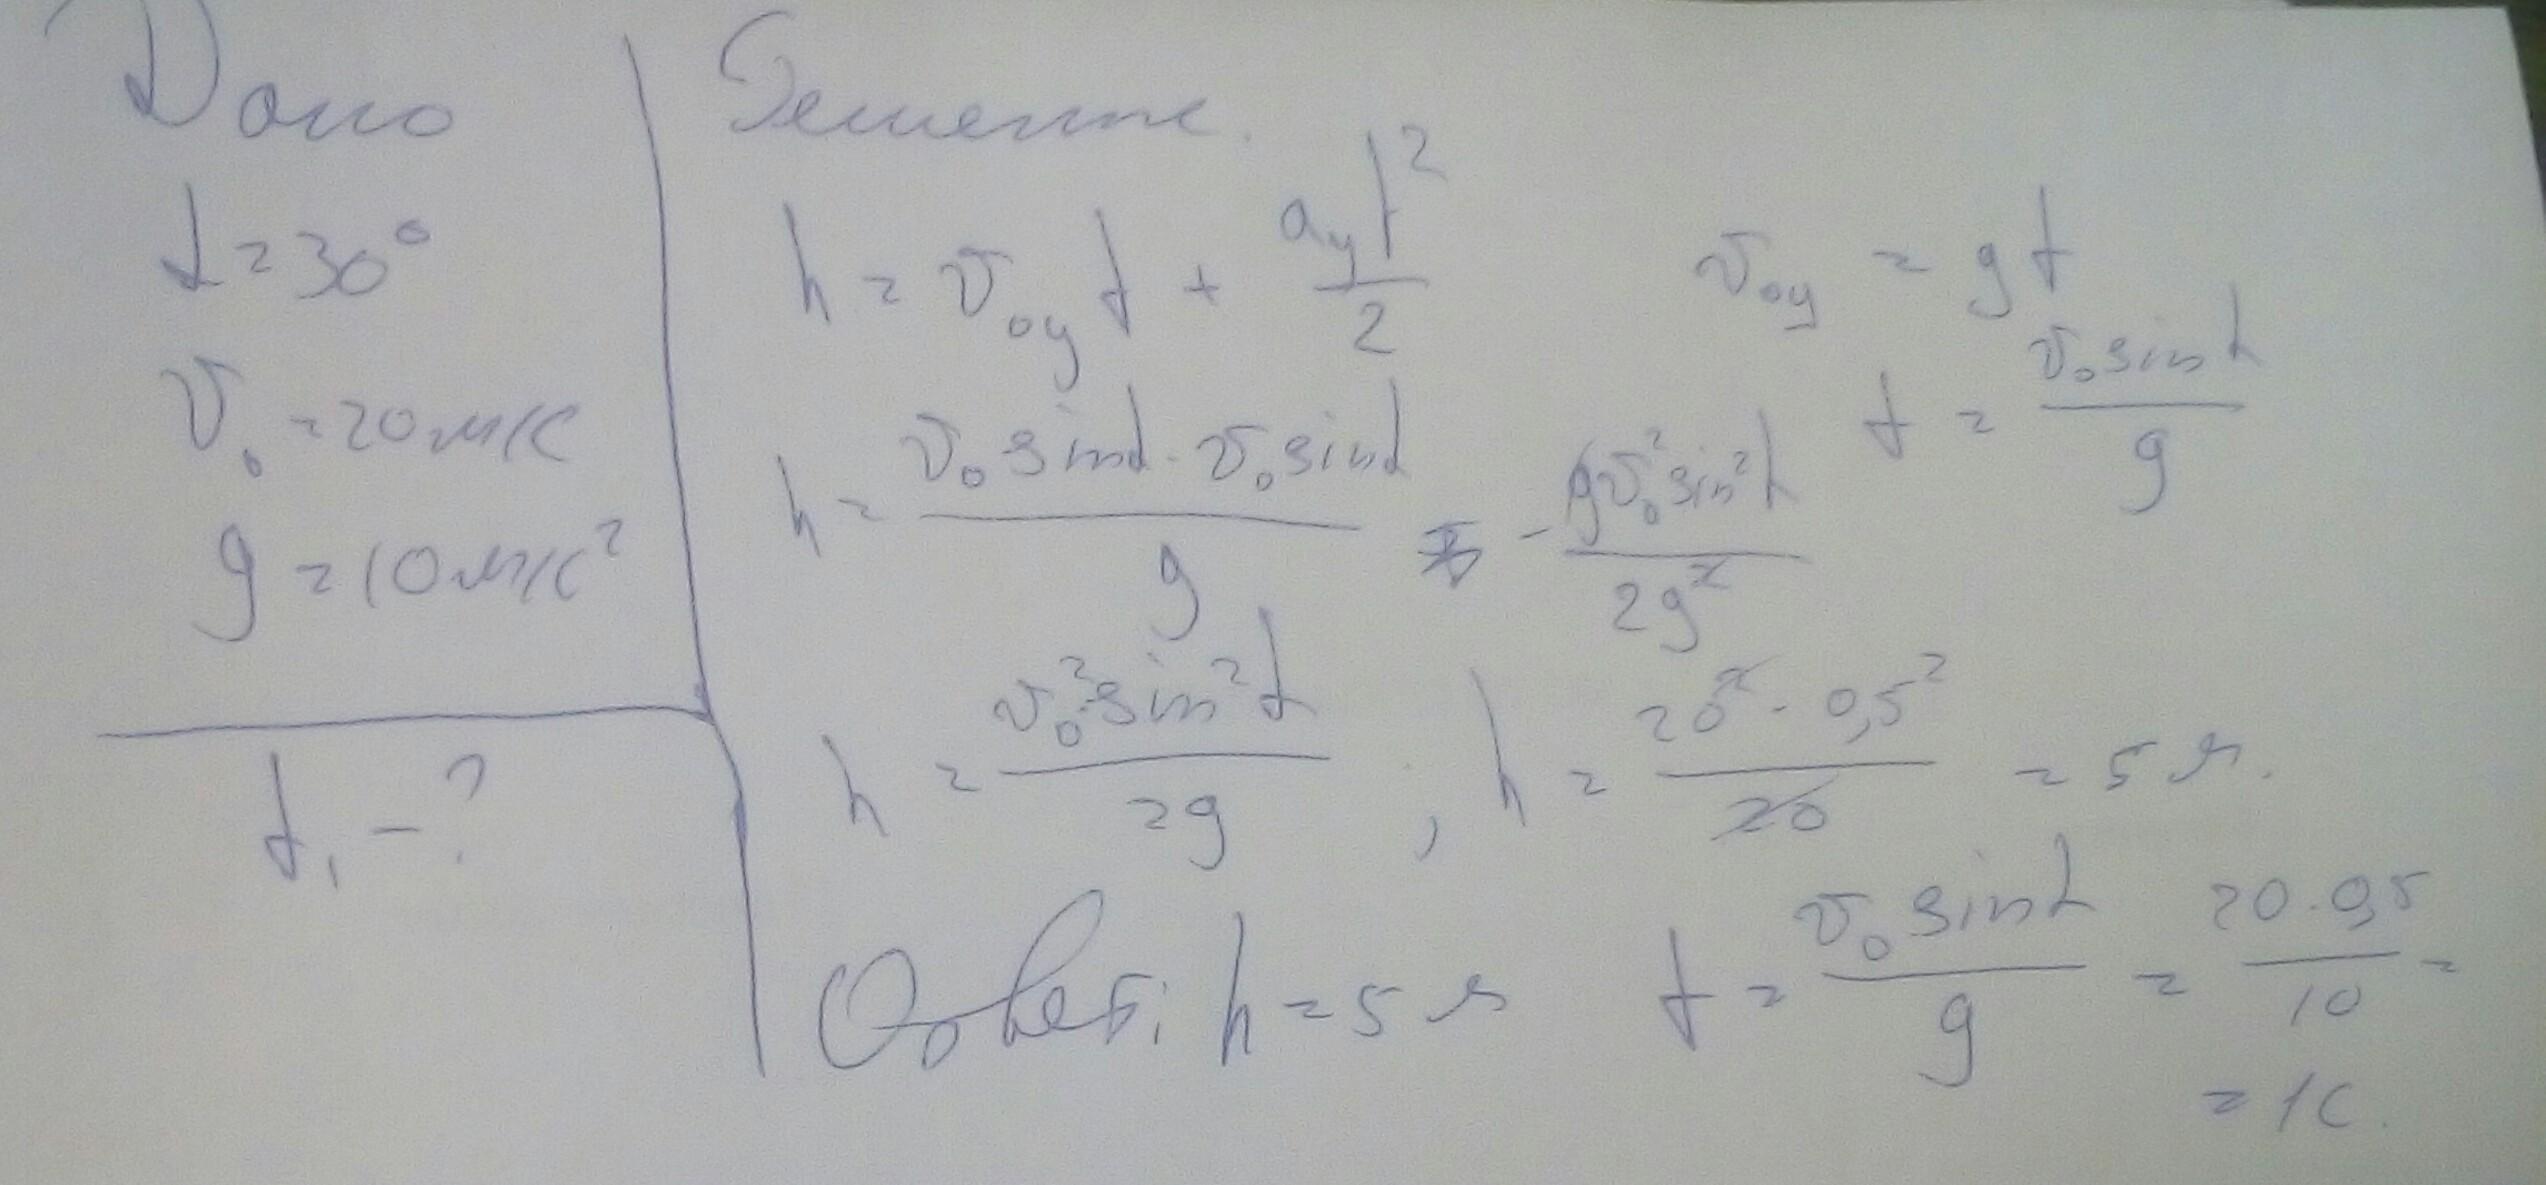 Дано
α = 30°
v₀ = 20 м/с
g = 10 м/с²
t₁ - ?
Решение.
h = v₀y t + ay t²/2
v₀y = g t
t = v₀ sin α / g
h = v₀ sin α · v₀ sin α / g - g v₀² sin² α / 2g²
h = v₀² sin² α / 2g , h = 20² · 0,5² / 20 = 5 м.
Ответ: h = 5 м
t = v₀ sin α / g = 20 · 0,5 / 10 =
= 1 с.